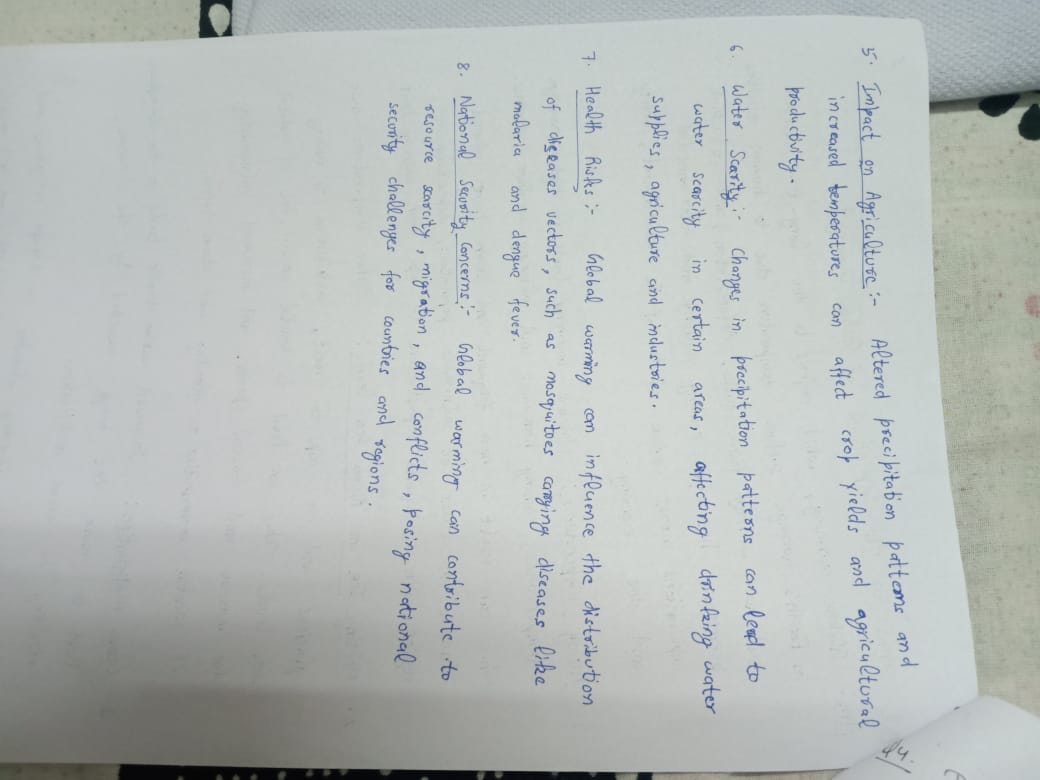 5. Impact on Agriculture :- Altered precipitation patterns and
increased temperatures can affect crop yields and agricultural
productivity.
6. Water Scarity :- Changes in precipitation patterns can lead to
water scarcity in certain areas, affecting drinking water
supplies, agriculture and industries.
7. Health Risks :- Global warming can influence the distribution
of diseases vectors, such as mosquitoes carrying diseases like
malaria and dengue fever.
8. National Security Concerns :- Global warming can contribute to
resource scarcity, migration, and conflicts, posing national
security challenges for countries and regions.